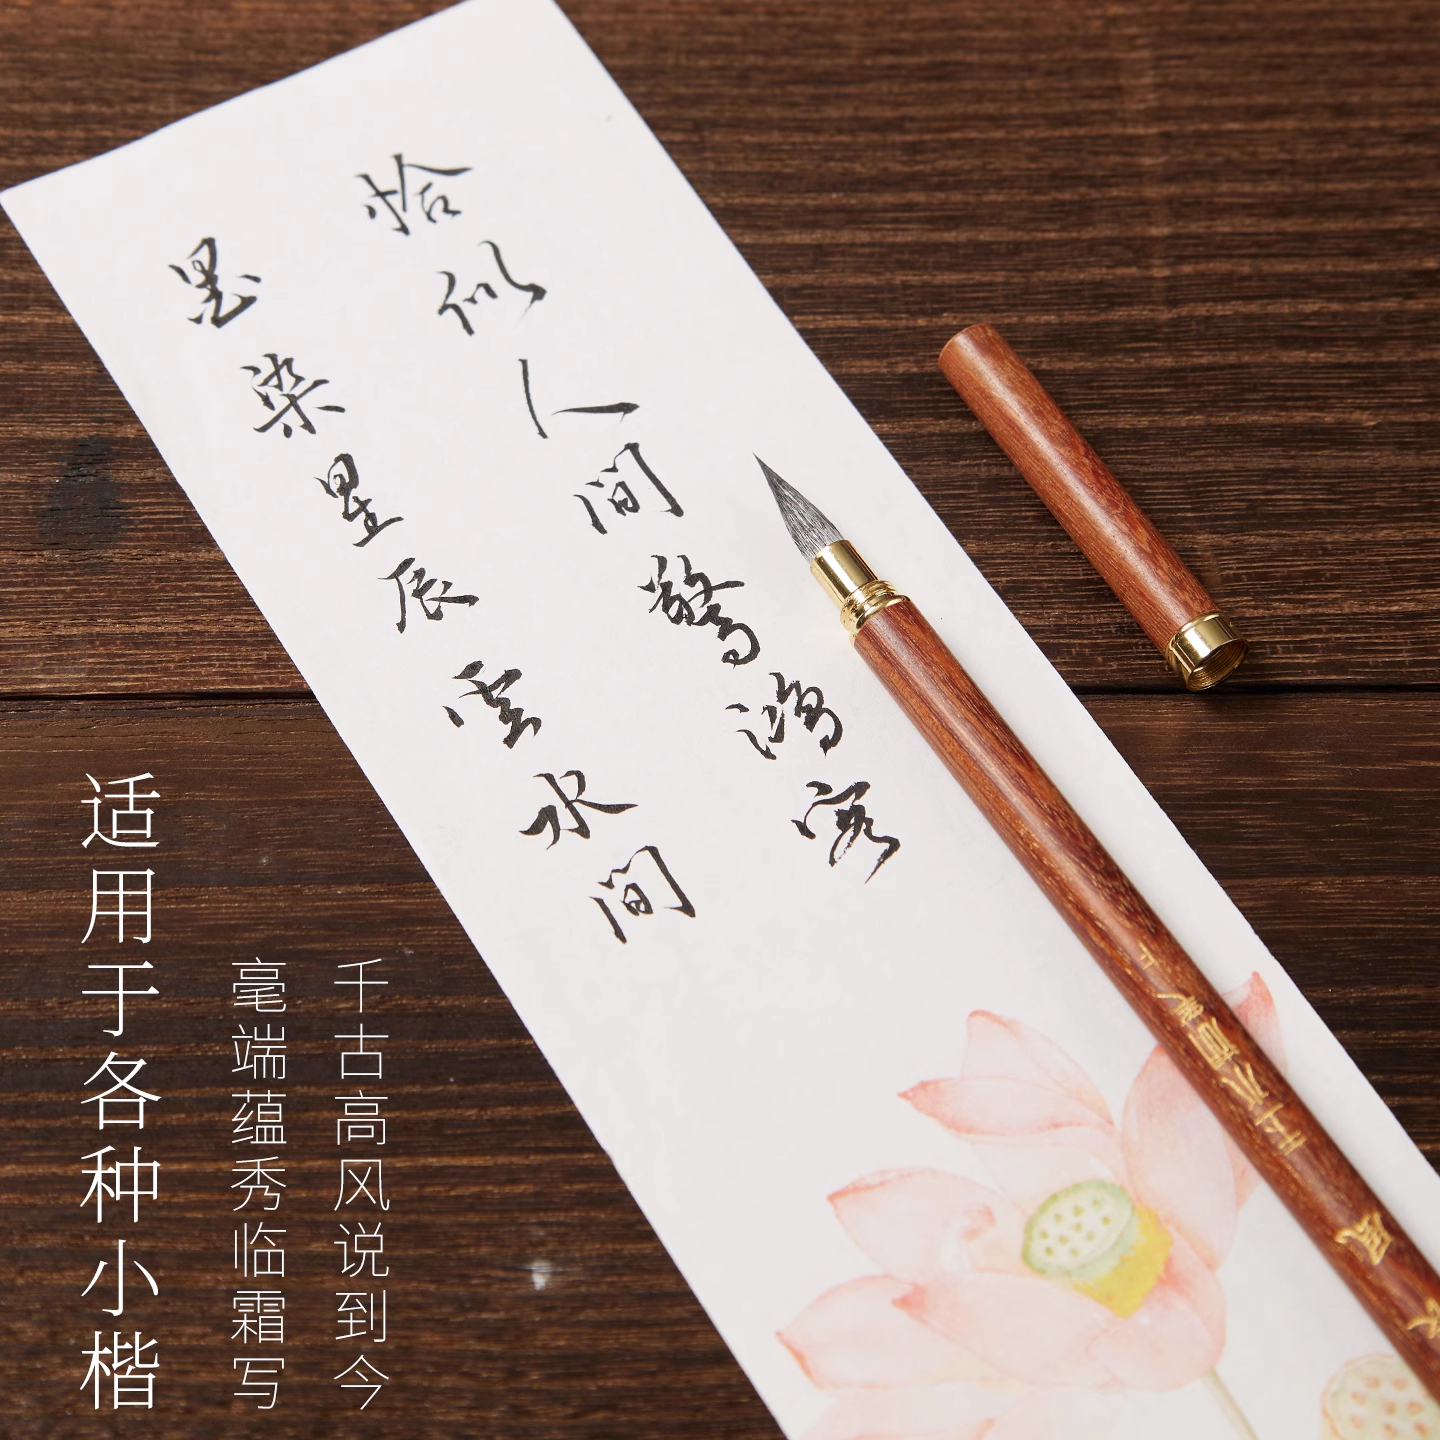 恰似人间驚鸿客
墨染星辰雲水间
适用于各种小楷
毫端蕴秀临霜写
千古高风说到今